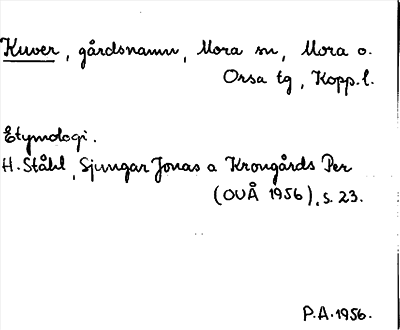 Kuver, gårdsnamn, Mora sn, Mora o.
Orsa tg, Kopp.l.
Etymologi.
H. Ståhl, Sjungar Jonas a Krongårds Per
(OUÅ 1956), s. 23.
P.A. 1956.